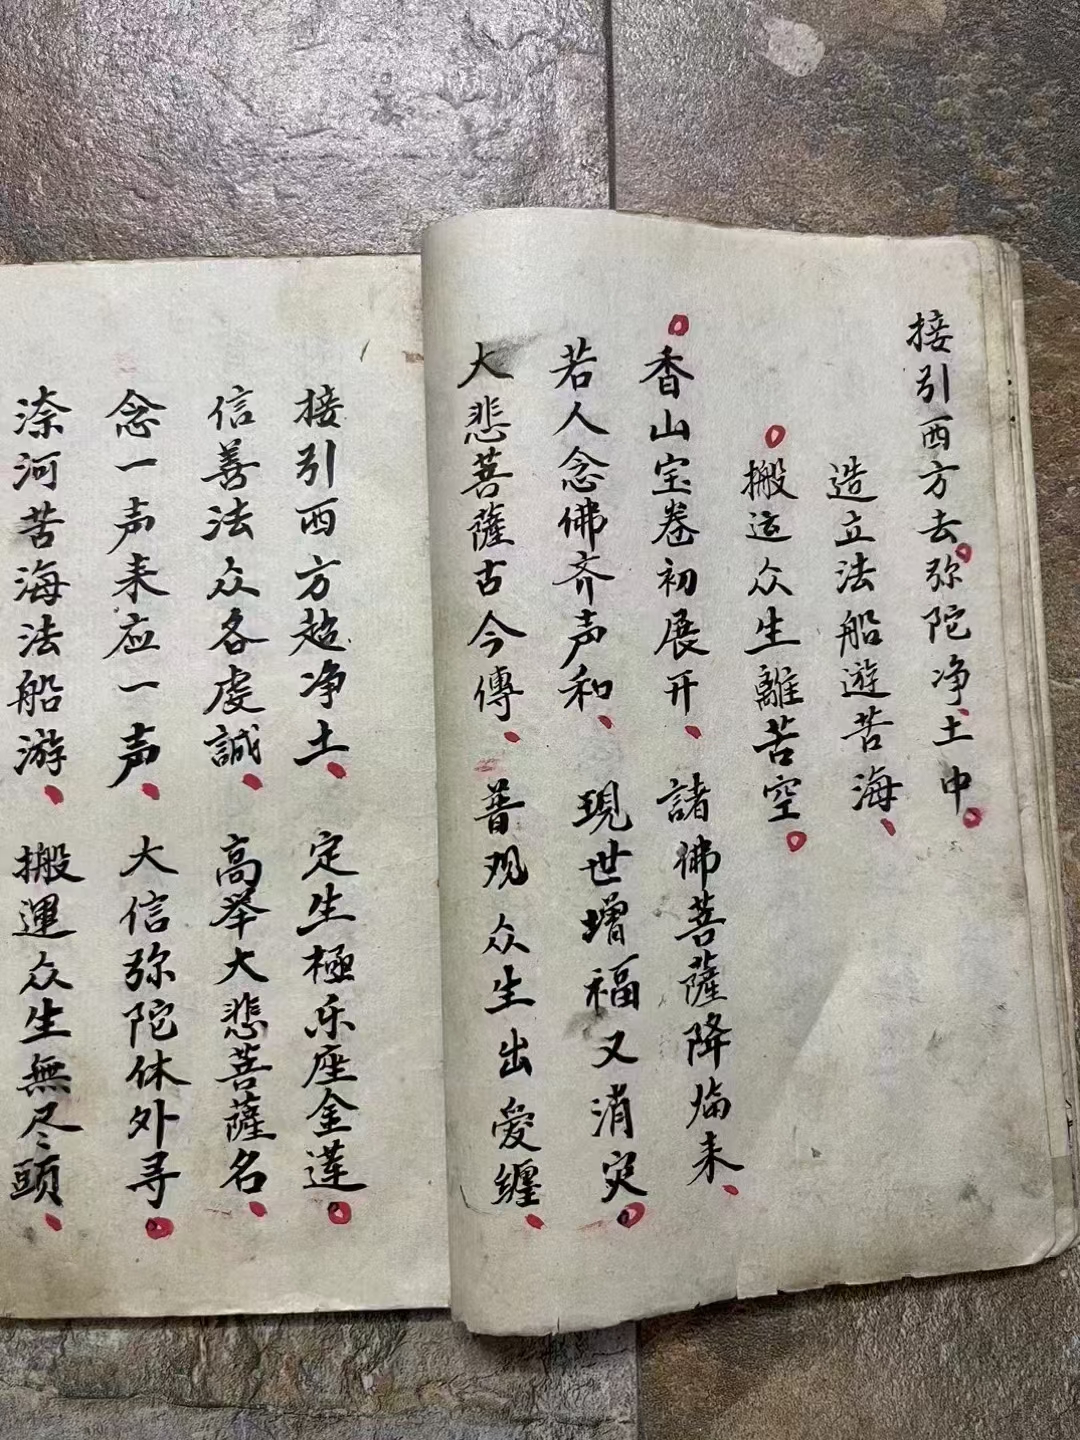 接引西方去弥陀净土中
造立法船遊苦海
搬运众生離苦空
香山宝卷初展开 諸佛菩薩降临来
若人念佛齐声和 現世增福又消灾
大悲菩薩古今傳 普观众生出爱缠
接引西方超净土 定生極乐座金莲
信善法众各虔誠 高举大悲菩薩名
念一声来应一声 大信弥陀休外寻
渿河苦海法船游 搬運众生無尽頭